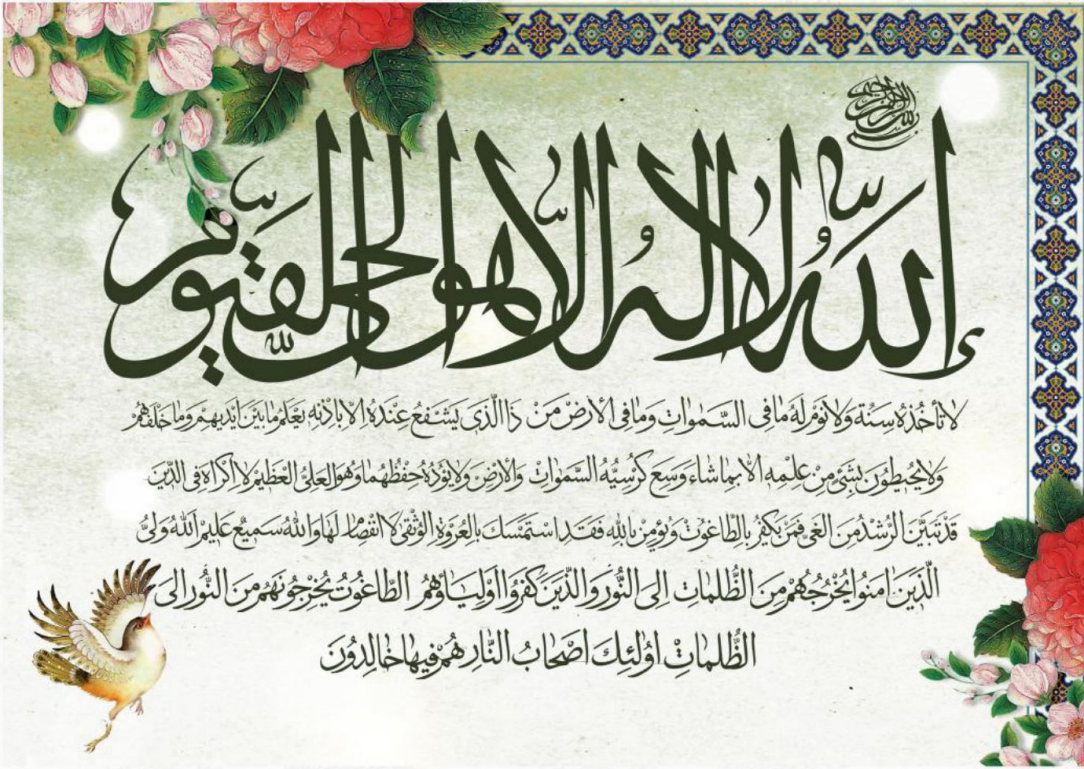 بسم الله الرحمن الرحيم
الله لا اله الا هو الحی القیوم
لا تأخذه سنة ولا نوم له ما فی السموات وما فی الارض من ذا الذی یشفع عنده الا باذنه یعلم ما بین ایدیهم وما خلفهم
ولا یحیطون بشیء من علمه الا بما شاء وسع کرسیه السموات والارض ولا یؤده حفظهما وهو العلی العظیم لا اکراه فی الدین
قد تبین الرشد من الغی فمن یکفر بالطاغوت ویؤمن بالله فقد استمسک بالعروة الوثقی لا انفصام لها والله سمیع علیم الله ولی
الذین امنوا یخرجهم من الظلمات الی النور والذین کفروا اولیاؤهم الطاغوت یخرجونهم من النور الی
الظلمات اولئک اصحاب النار هم فیها خالدون